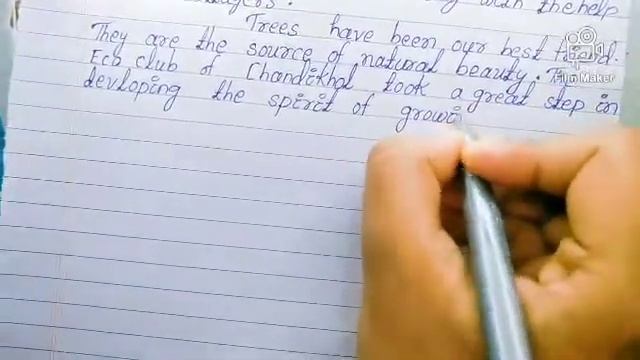 with the help
Trees have been our best friend.
They are the source of natural beauty. The
Eco club of Chandikhol took a great step in
devloping the spirit of growi
Film Maker